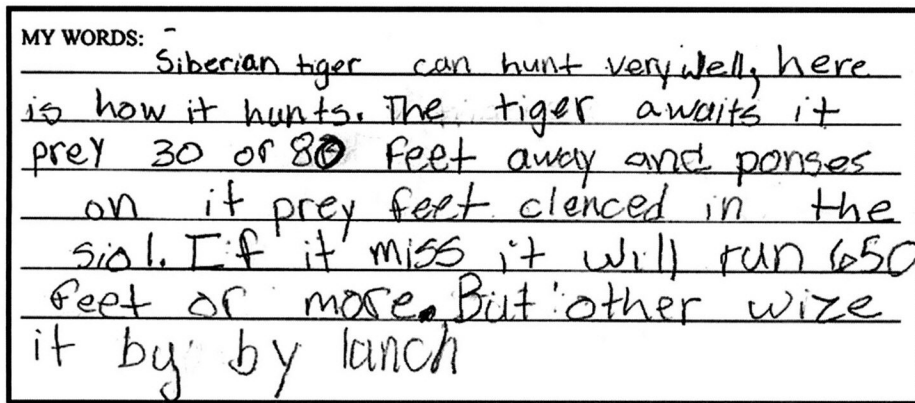 MY WORDS:
Siberian tiger can hunt very well, here
is how it hunts. The tiger awaits it
prey 30 or 80 feet away and ponses
on it prey feet clenced in the
siol. If it miss it will run 650
feet or more. But other wize
it by by lanch